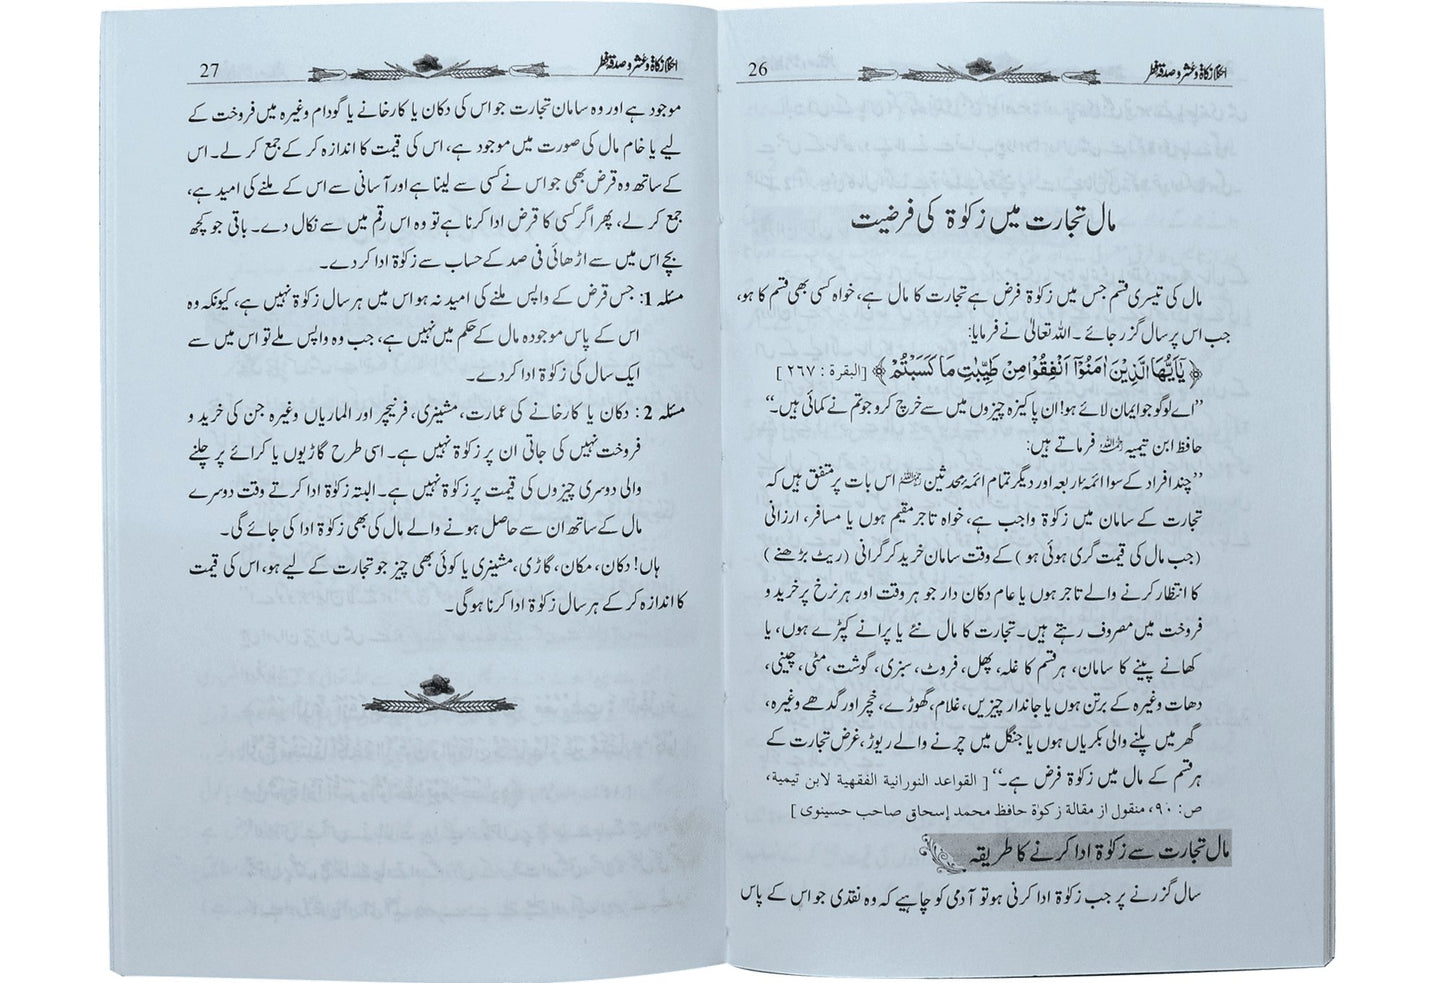 احکام زکاۃ و عشر و صدقۂ فطر
26
مال تجارت میں زکوٰۃ کی فرضیت
مال کی تیسری قسم جس میں زکوٰۃ فرض ہے تجارت کا مال ہے، خواہ کسی بھی قسم کا ہو،
جب اس پر سال گزر جائے۔ اللہ تعالیٰ نے فرمایا:
﴿يٰٓاَيُّهَا الَّذِيْنَ اٰمَنُوْٓا اَنْفِقُوْا مِنْ طَيِّبٰتِ مَا كَسَبْتُمْ﴾ [البقرة : ٢٦٧]
’’اے لوگو جو ایمان لائے ہو! ان پاکیزہ چیزوں میں سے خرچ کرو جو تم نے کمائی ہیں۔‘‘
حافظ ابن تیمیہ رحمہ اللہ فرماتے ہیں:
’’چند افراد کے سوا ائمہ اربعہ اور دیگر تمام ائمہ محدثین رحمہم اللہ اس بات پر متفق ہیں کہ
تجارت کے سامان میں زکوٰۃ واجب ہے، خواہ تاجر مقیم ہوں یا مسافر، ارزانی
(جب مال کی قیمت گری ہوئی ہو) کے وقت سامان خرید کر گرانی (ریٹ بڑھنے)
کا انتظار کرنے والے تاجر ہوں یا عام دکان دار جو ہر وقت اور ہر نرخ پر خرید و
فروخت میں مصروف رہتے ہیں۔ تجارت کا مال نئے یا پرانے کپڑے ہوں، یا
کھانے پینے کا سامان، ہر قسم کا غلہ، پھل، فروٹ، سبزی، گوشت، مٹی، چینی،
دھات وغیرہ کے برتن ہوں یا جاندار چیزیں، غلام، گھوڑے، خچر اور گدھے وغیرہ،
گھر میں پلنے والی بکریاں ہوں یا جنگل میں چرنے والے ریوڑ، غرض تجارت کے
ہر قسم کے مال میں زکوٰۃ فرض ہے۔‘‘ [القواعد النورانية الفقهية لابن تيمية،
ص: ٩٠، منقول از مقالة زكوٰة حافظ محمد إسحاق صاحب حسينوى]
مال تجارت سے زکوٰۃ ادا کرنے کا طریقہ
سال گزرنے پر جب زکوٰۃ ادا کرنی ہو تو آدمی کو چاہیے کہ وہ نقدی جو اس کے پاس
احکام زکاۃ و عشر و صدقۂ فطر
27
موجود ہے اور وہ سامان تجارت جو اس کی دکان یا کارخانے یا گودام وغیرہ میں فروخت کے
لیے یا خام مال کی صورت میں موجود ہے، اس کی قیمت کا اندازہ کر کے جمع کر لے۔ اس
کے ساتھ وہ قرض بھی جو اس نے کسی سے لینا ہے اور آسانی سے اس کے ملنے کی امید ہے،
جمع کر لے، پھر اگر کسی کا قرض ادا کرنا ہے تو وہ اس رقم میں سے نکال دے۔ باقی جو کچھ
بچے اس میں سے اڑھائی فی صد کے حساب سے زکوٰۃ ادا کر دے۔
مسئلہ 1: جس قرض کے واپس ملنے کی امید نہ ہو اس میں ہر سال زکوٰۃ نہیں ہے، کیونکہ وہ
اس کے پاس موجودہ مال کے حکم میں نہیں ہے، جب وہ واپس ملے تو اس میں سے
ایک سال کی زکوٰۃ ادا کر دے۔
مسئلہ 2: دکان یا کارخانے کی عمارت، مشینری، فرنیچر اور الماریاں وغیرہ جن کی خرید و
فروخت نہیں کی جاتی ان پر زکوٰۃ نہیں ہے۔ اسی طرح گاڑیوں یا کرائے پر چلنے
والی دوسری چیزوں کی قیمت پر زکوٰۃ نہیں ہے۔ البتہ زکوٰۃ ادا کرتے وقت دوسرے
مال کے ساتھ ان سے حاصل ہونے والے مال کی بھی زکوٰۃ ادا کی جائے گی۔
ہاں! دکان، مکان، گاڑی، مشینری یا کوئی بھی چیز جو تجارت کے لیے ہو، اس کی قیمت
کا اندازہ کر کے ہر سال زکوٰۃ ادا کرنا ہوگی۔